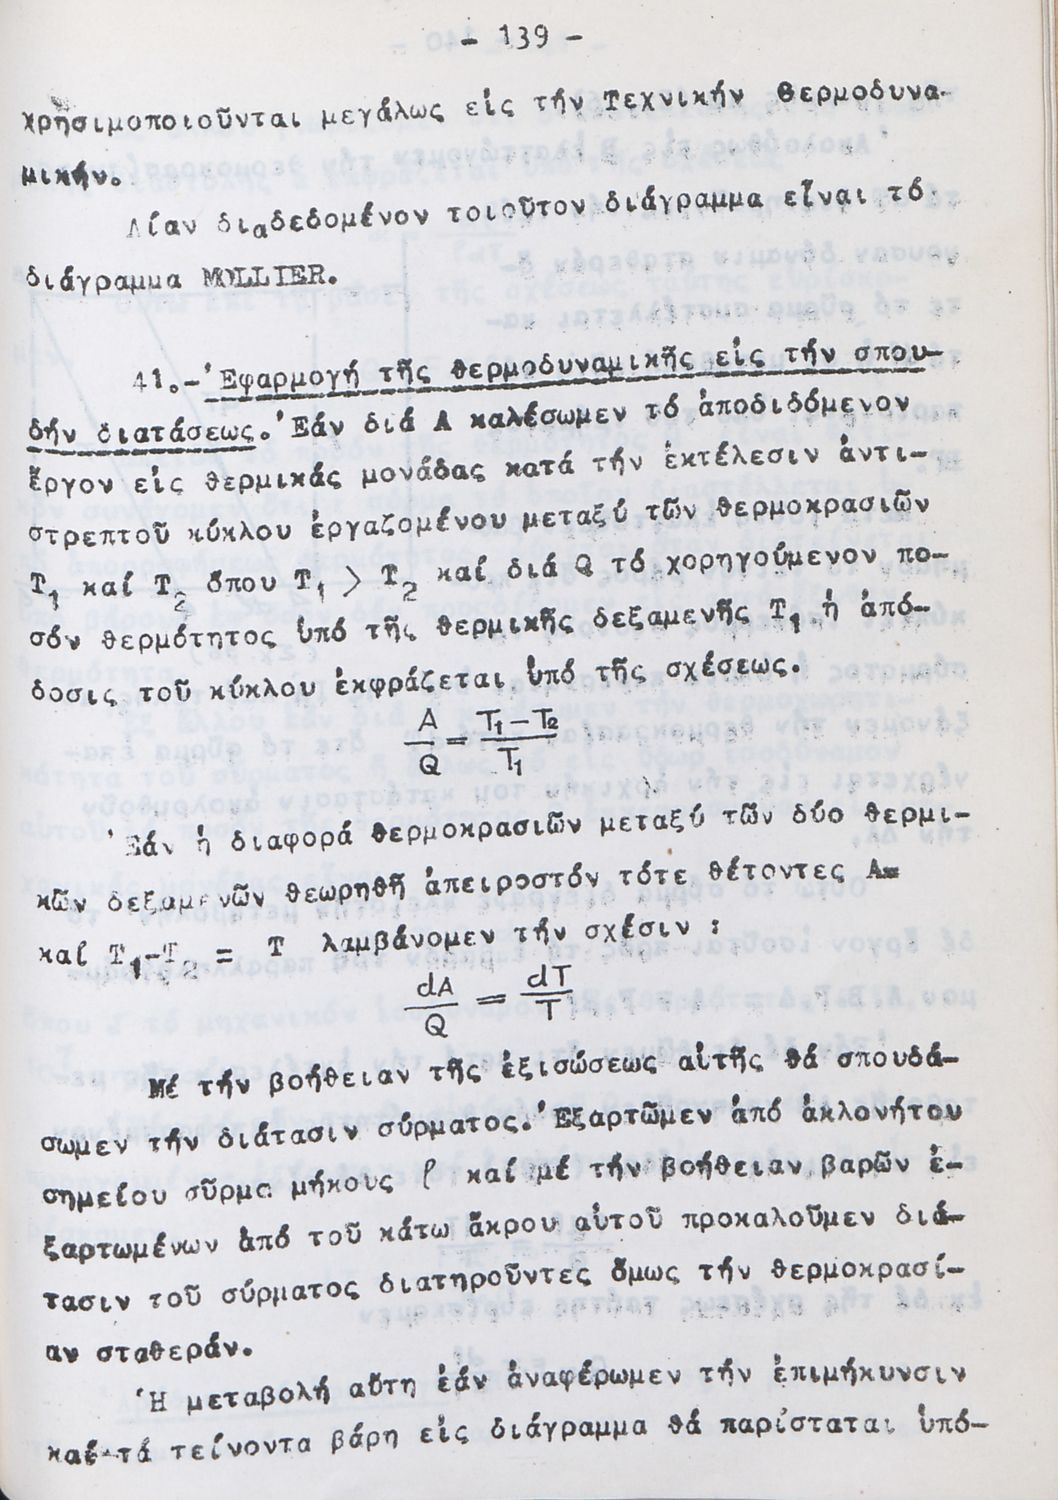 - 139 -
χρησιμοποιοῦνται μεγάλως εἰς τήν Τεχνικήν Θερμοδυνα-
μικήν.
Λίαν διαδεδομένον τοιοῦτον διάγραμμα εἶναι τό
διάγραμμα MOLLIER.
41.- Ἐφαρμογή τῆς θερμοδυναμικῆς εἰς τήν σπου-
δήν διατάσεως. Ἐάν διά Α καλέσωμεν τό ἀποδιδόμενον
ἔργον εἰς θερμικάς μονάδας κατά τήν ἐκτέλεσιν ἀντι-
στρεπτοῦ κύκλου ἐργαζομένου μεταξύ τῶν θερμοκρασιῶν
T₁ καί T₂ ὅπου T₁ > T₂ καί διά Q τό χορηγούμενον πο-
σόν θερμότητος ὑπό τῆς θερμικῆς δεξαμενῆς T₁ ἡ ἀπό-
δοσις τοῦ κύκλου ἐκφράζεται ὑπό τῆς σχέσεως.
A/Q = (T₁ - T₂)/T₁
Ἐάν ἡ διαφορά θερμοκρασιῶν μεταξύ τῶν δύο θερμι-
κῶν δεξαμενῶν θεωρηθῆ ἀπειροστόν τότε θέτοντες A=
καί T₁-T₂ = T λαμβάνομεν τήν σχέσιν :
dA/Q = dT/T
Μέ τήν βοήθειαν τῆς ἐξισώσεως αὐτῆς θά σπουδά-
σωμεν τήν διάτασιν σύρματος. Ἐξαρτῶμεν ἀπό ἀκλονήτου
σημείου σῦρμα μήκους ℓ καί μέ τήν βοήθειαν βαρῶν ἐ-
ξαρτωμένων ἀπό τοῦ κάτω ἄκρου αὐτοῦ προκαλοῦμεν διά-
τασιν τοῦ σύρματος διατηροῦντες ὅμως τήν θερμοκρασί-
αν σταθεράν.
Ἡ μεταβολή αὕτη ἐάν ἀναφέρωμεν τήν ἐπιμήκυνσιν
καί τά τείνοντα βάρη εἰς διάγραμμα θά παρίσταται ὑπό-